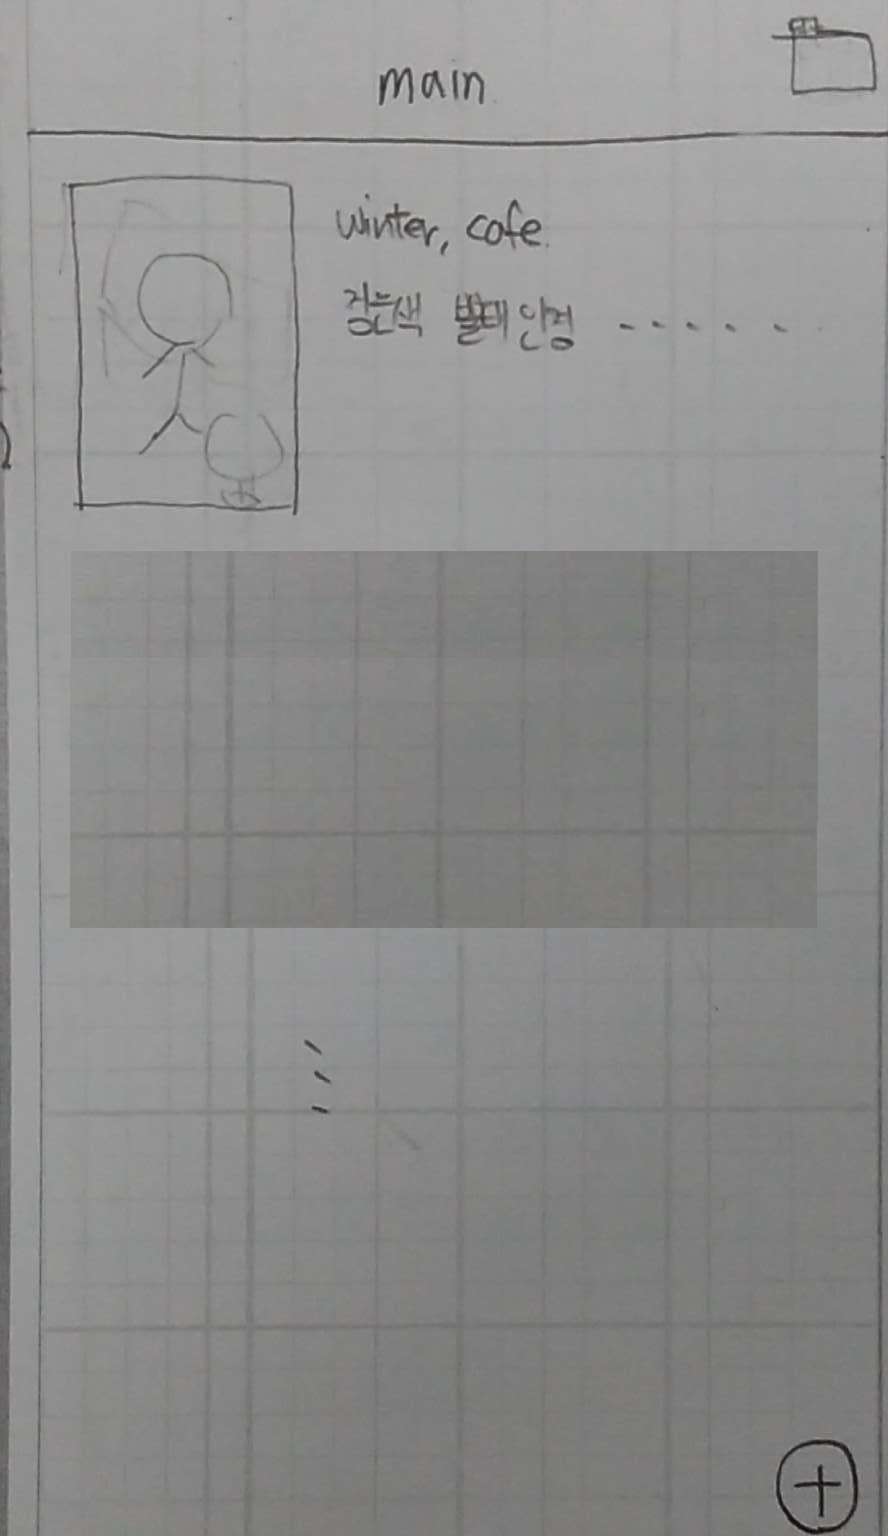 main
winter, cafe.
검은색 뿔테안경 ......